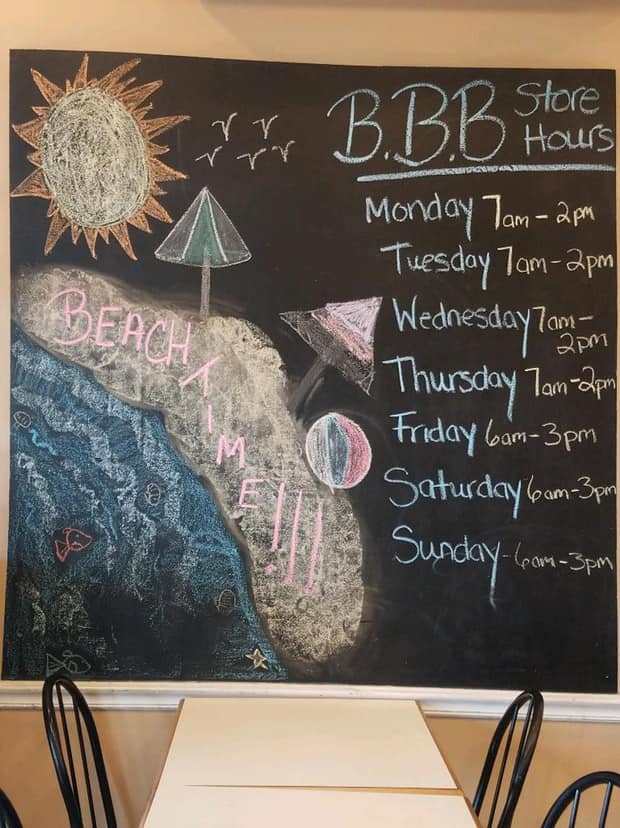 BEACH TIME!!!
B.B.B Store Hours
Monday 7am-2pm
Tuesday 7am-2pm
Wednesday 7am-
2pm
Thursday 7am-2pm
Friday 6am-3pm
Saturday 6am-3pm
Sunday-6am-3pm